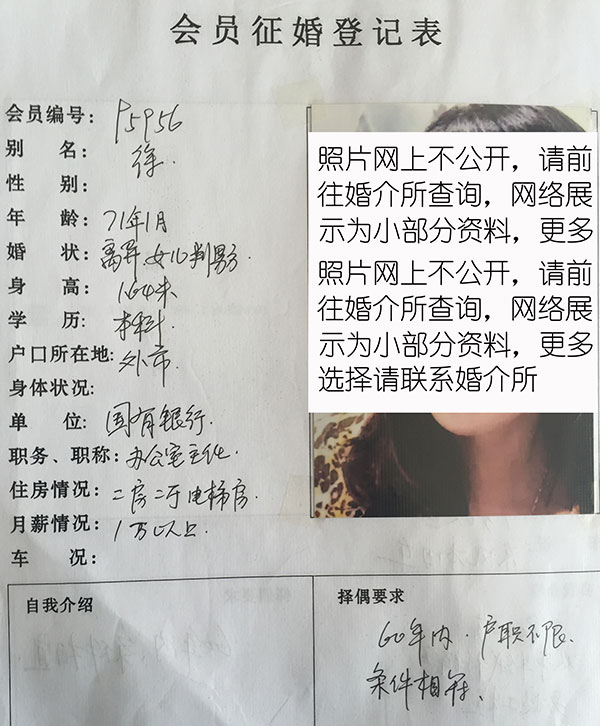 会员征婚登记表
会员编号: P5956
别 名: 徐.
性 别:
年 龄: 71年1月
婚 状: 离异,女儿判男方
身 高: 1.64米
学 历: 本科.
户口所在地: 外市.
身体状况:
单 位: 国有银行.
职务、职称: 办公室主任.
住房情况: 二房二厅电梯房.
月薪情况: 1万以上.
车 况:
照片网上不公开，请前
往婚介所查询，网络展
示为小部分资料，更多
照片网上不公开，请前
往婚介所查询，网络展
示为小部分资料，更多
选择请联系婚介所
自我介绍
择偶要求
60年内.户职不限.
条件相符、